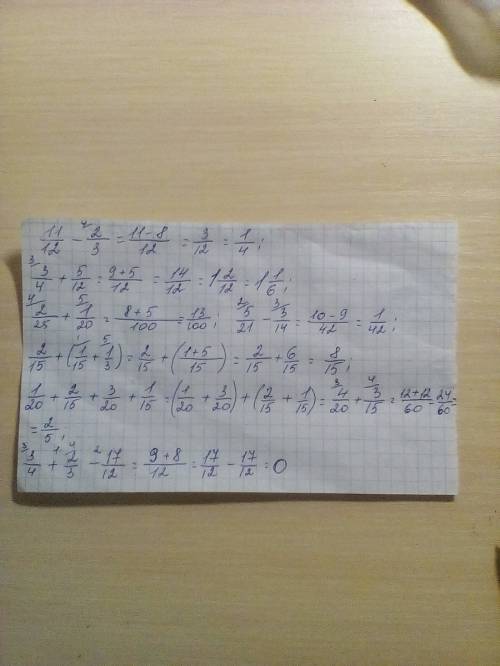 11/12 - ⁴2/3 = 11-8/12 = 3/12 = 1/4;
³3/4 + 5/12 = 9+5/12 = 14/12 = 1 2/12 = 1 1/6;
⁴2/25 + ⁵1/20 = 8+5/100 = 13/100; ²5/21 - ³3/14 = 10-9/42 = 1/42;
2/15 + (¹1/15 + ⁵1/3) = 2/15 + (1+5/15) = 2/15 + 6/15 = 8/15;
1/20 + 2/15 + 3/20 + 1/15 = (1/20 + 3/20) + (2/15 + 1/15) = ³4/20 + ⁴3/15 = 12+12/60 = 24/60 =
= 2/5;
³3/4 + ⁴2/3 - 17/12 = 9+8/12 = 17/12 - 17/12 = 0